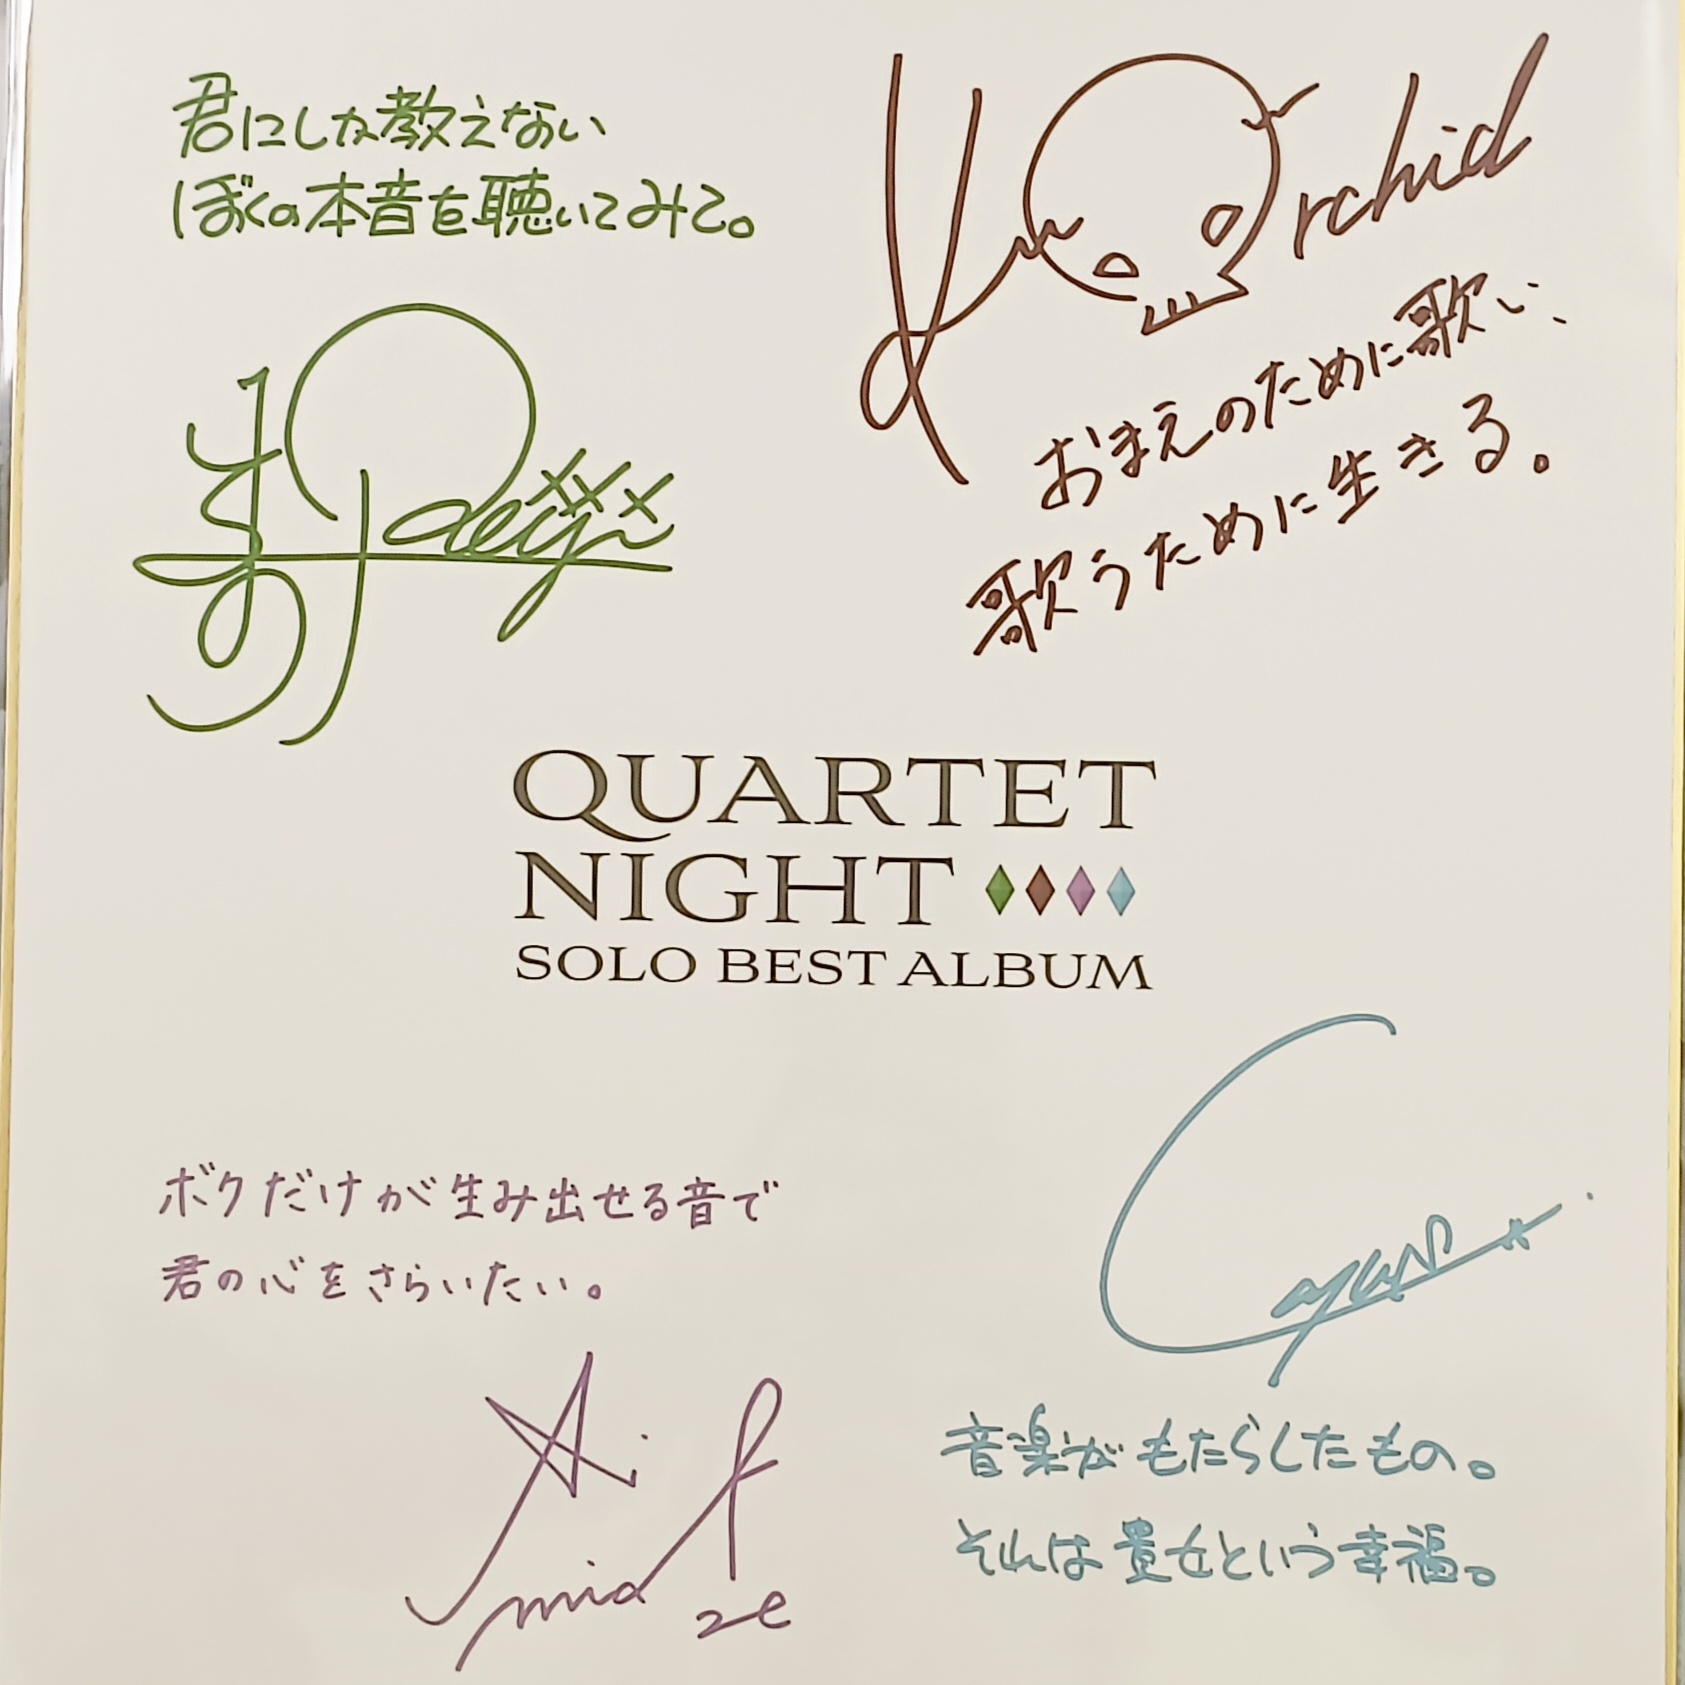 君にしか教えない
ぼくの本音を聴いてみて。
K Orchid
おまえのために歌い、
歌うために生きる。
QUARTET
NIGHT
SOLO BEST ALBUM
ボクだけが生み出せる音で
君の心をさらいたい。
Ai
mi
Camus
音楽がもたらしたもの。
それは貴女という幸福。